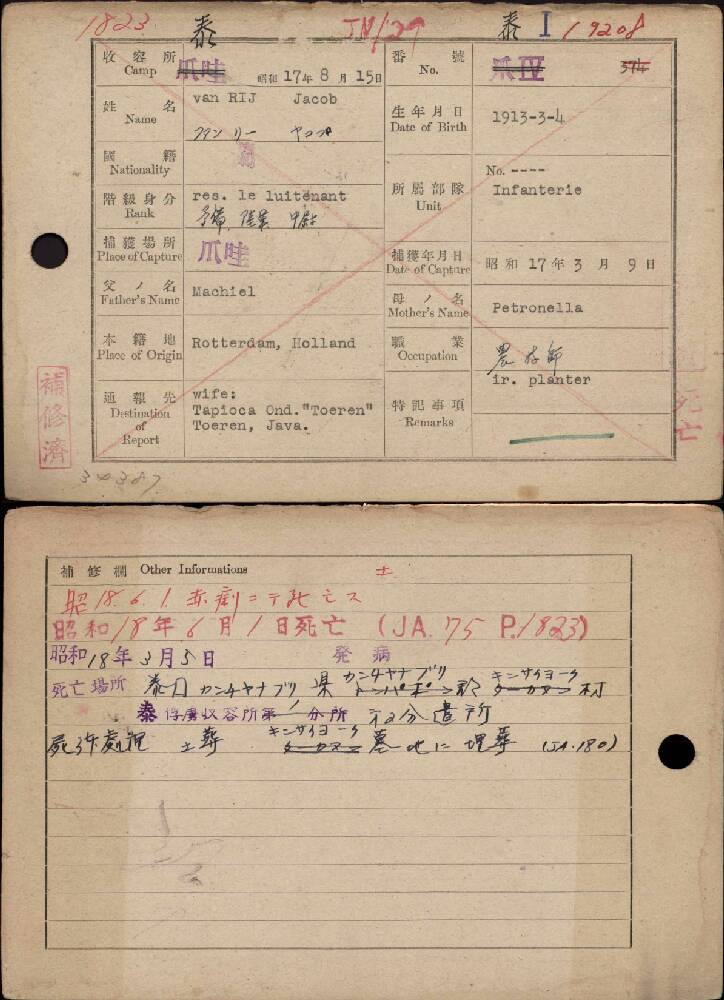 1823 泰 泰 I 19208
收容所 Camp 爪哇 昭和17年8月15日
番號 No. 爪 IV 374
姓名 Name van RIJ Jacob
ヤコブ
生年月日 Date of Birth 1913-3-4
國籍 Nationality 蘭
階級身分 Rank res. 1e luitenant
予備 陸軍 中尉
所屬部隊 Unit No. ----
Infanterie
捕獲場所 Place of Capture 爪哇
捕獲年月日 Date of Capture 昭和17年3月9日
父ノ名 Father's Name Machiel
母ノ名 Mother's Name Petronella
本籍地 Place of Origin Rotterdam, Holland
職業 Occupation
ir. planter
通報先 Destination of Report wife:
Tapioca Ond."Toeren"
Toeren, Java.
特記事項 Remarks
死亡
補修濟
30387
補修欄 Other Informations 土
昭18.6.1.赤痢ニテ死亡ス
昭和18年6月1日死亡 (JA.75 P.1823)
昭和18年3月5日 発病
死亡場所 泰国カンチヤナブリ県 カンチヤナブリ郡 キンサイヨーク ターカヌン村
泰俘虜収容所第1分所
屍体處理 土葬 キンサイヨーク ターカヌン墓地に埋葬 (JA.180)